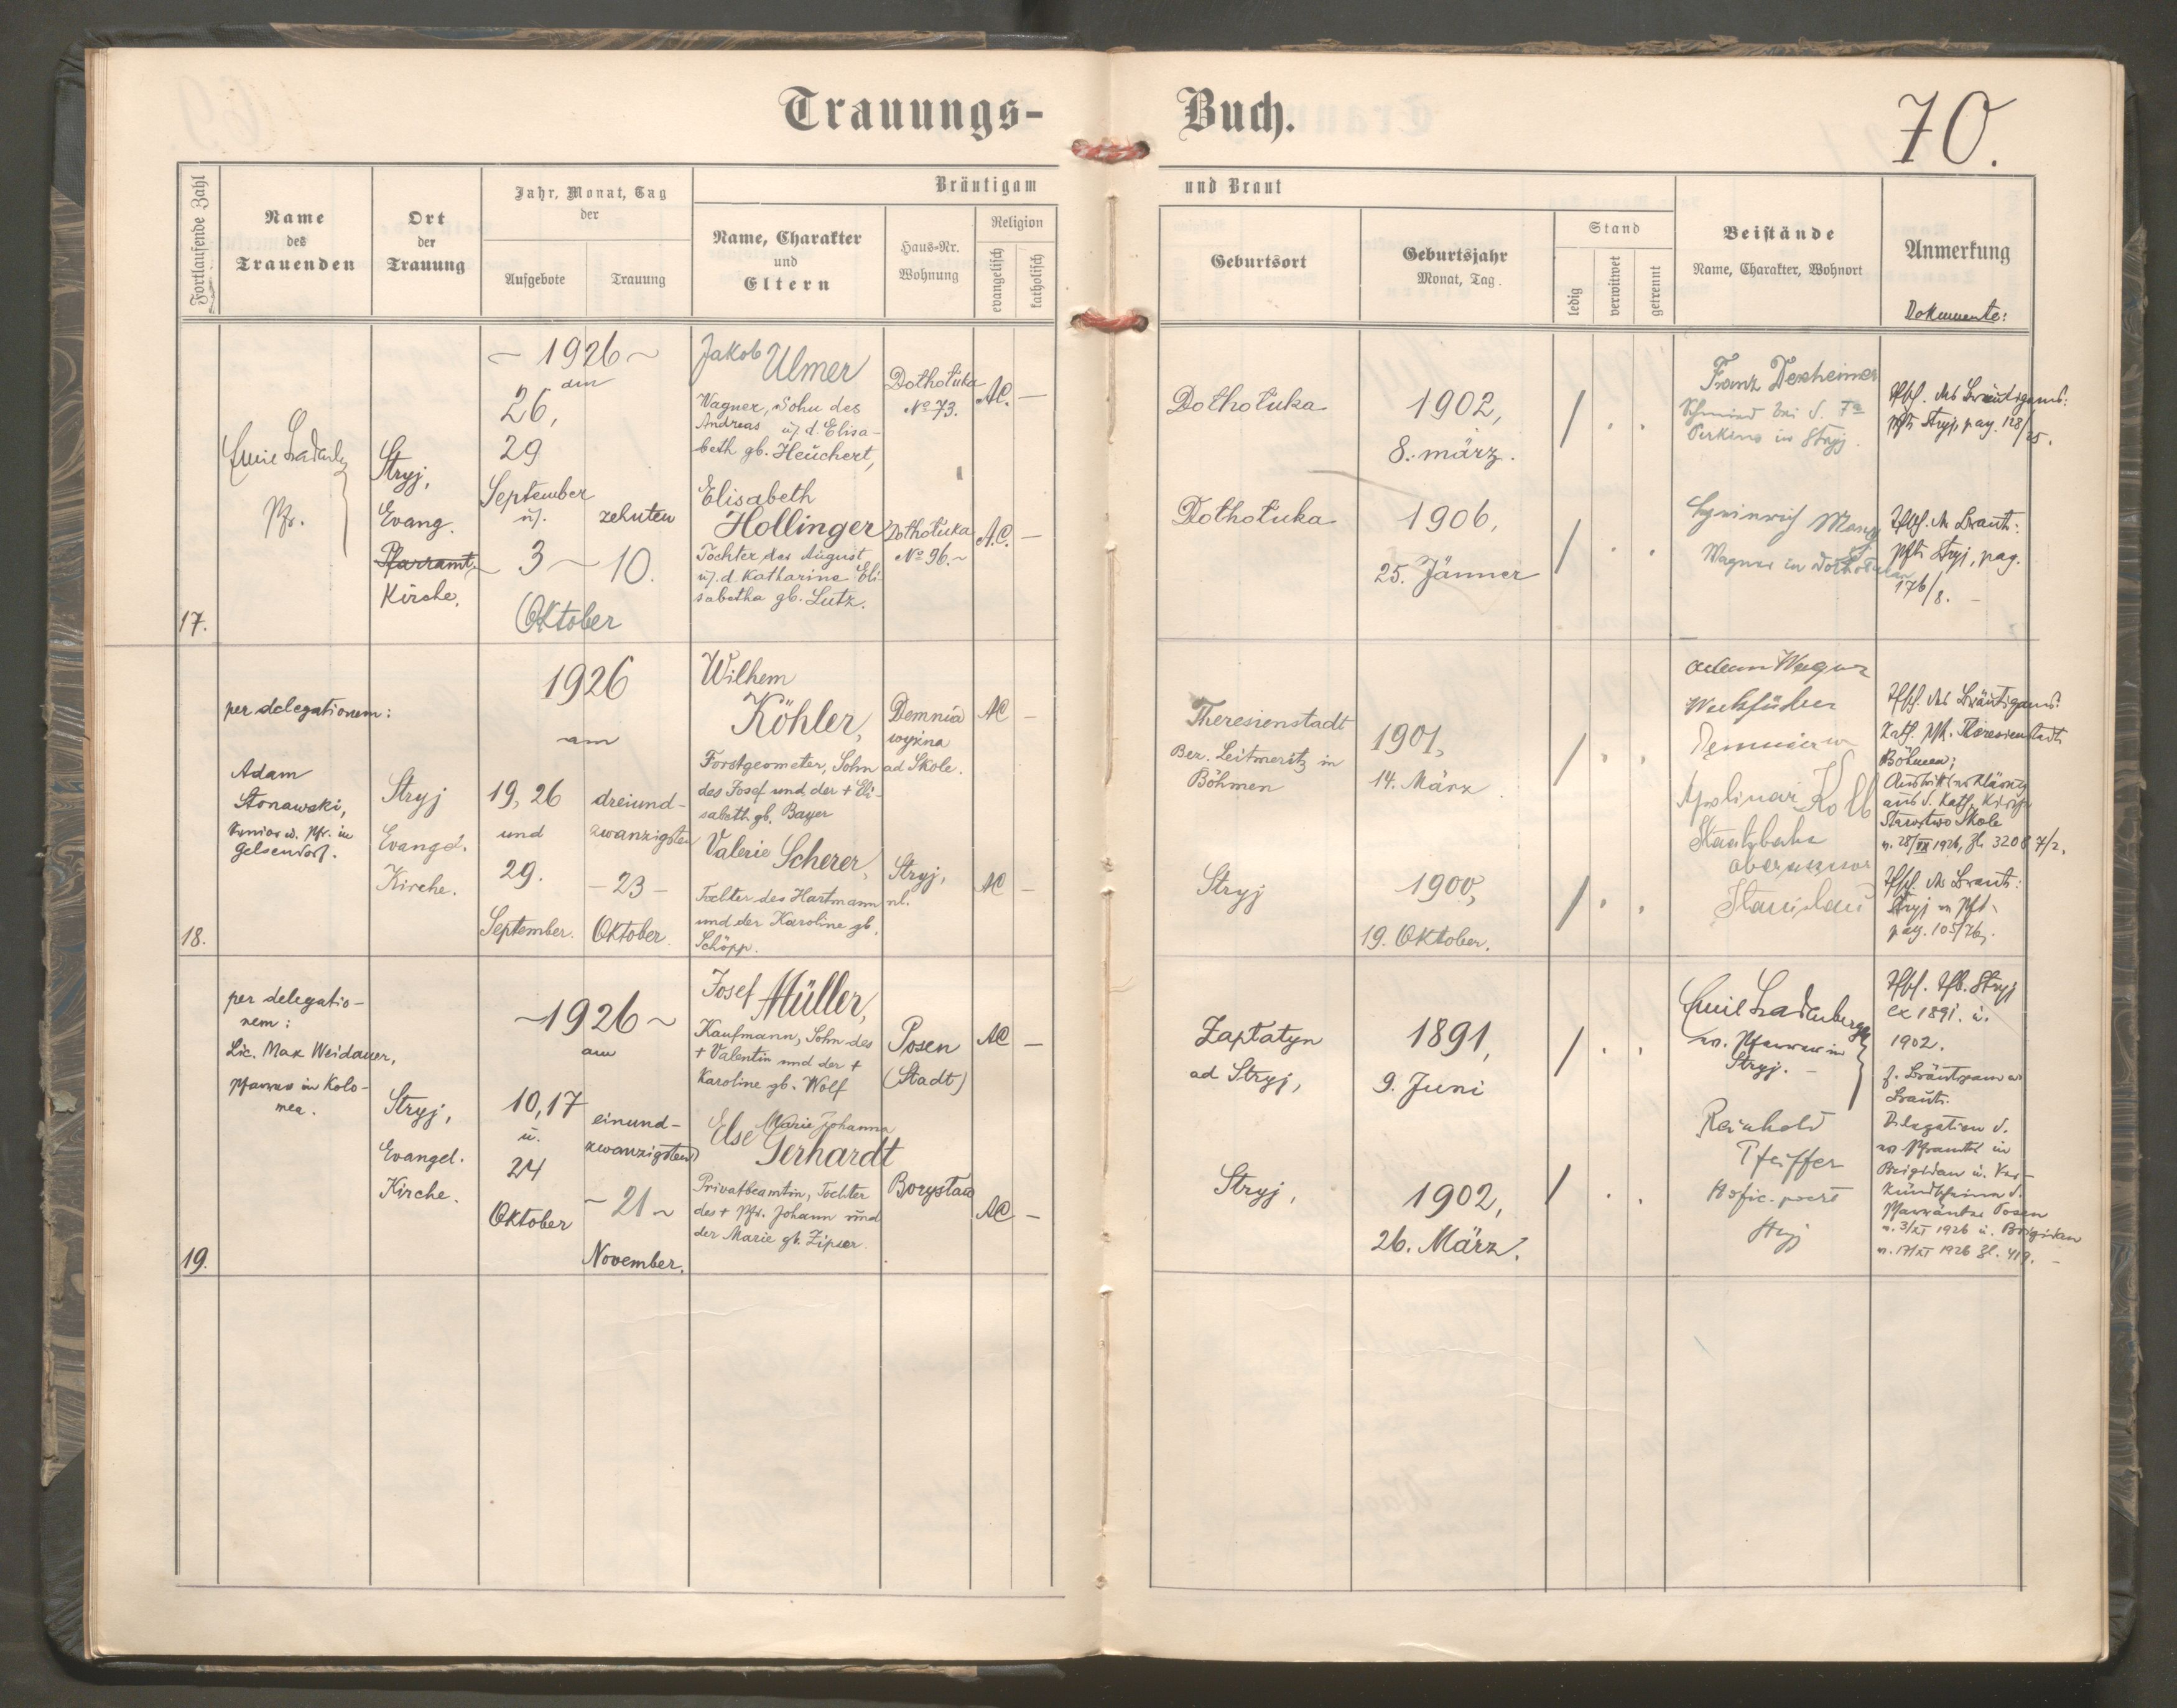 Trauungs-Buch.
70.
Fortlaufende Zahl
Name
des
Trauenden
Ort
der
Trauung
Jahr, Monat, Tag
der
Aufgebote
Trauung
Bräutigam und Braut
Name, Charakter
und
Eltern
Haus-Nr.
Wohnung
Religion
evangelisch
katholisch
Geburtsort
Geburtsjahr
Monat, Tag.
Stand
ledig
verwitwet
getrennt
Beistände
Name, Charakter, Wohnort
Anmerkung
Dokumente:
17.
Pfr.
Stryj,
Evang.
Pfarramt,
Kirche.
~ 1926 ~
den
26,
29
September
u.
3
Oktober
zehnten
~ 10.
Jakob Ulmer
Wagner, Sohn des
Andreas u. d. Elisa-
beth gb. Heuchert,
Dołhołuka
No 73.
AC. —
Dołhołuka
1902,
8. März.
/ . .
Franz Dexheimer
Schmied bei d. Fa
Perkins in Stryj.
des Bräutigams:
Stryj, pag. 128/25.
Elisabeth
Hollinger
Tochter des August
u. d. Katharina Eli-
sabetha gb. Lutz.
Dołhołuka
No 96. ~
A.C. —
Dołhołuka
1906,
25. Jänner
/ . .
Wagner in
Braut:
Stryj, pag.
176/8. —
18.
per delegationem:
Adam
Stonawski,
Senior u. Pfr. in
Gelsendorf.
Stryj
Evangel.
Kirche.
1926
am
19, 26
und
29.
September.
dreiund-
zwanzigsten
— 23 —
Oktober.
Wilhem
Köhler,
Forstgeometer, Sohn
des Josef und der + Eli-
sabeth gb. Bayer
Demnia
wyżna
ad Skole.
AC —
Theresienstadt
Ber. Leitmeritz in
Böhmen
1901,
14. März
/ . .
Adam Wagner
Werkführer
Apolinar Kolb
Stanislau
des Bräutigams:
Kath. Theresienstadt
Böhmen;
Austrittserklärung
aus d. Kath. Kirche
Starostwo Skole
Valerie Scherer,
Tochter des Hartmann
und der Karoline gb.
Schöpp.
Stryj,
nl.
AC —
Stryj
1900,
19. Oktober.
/ . .
Braut:
Stryj
pag. 105/76.
19.
per delegatio-
nem:
Lic. Max Weidauer,
Pfarrer in Kolo-
mea.
Stryj,
Evangel.
Kirche.
~ 1926 ~
am
10, 17
u.
24
Oktober
einund-
zwanzigsten
~ 21 ~
November.
Josef Müller,
Kaufmann, Sohn des
+ Valentin und der +
Karoline gb. Wolf
Posen
(Stadt)
AC —
Zapłatyn
ad Stryj,
1891,
9. Juni
/ . .
Emil Ladenberger
ev. Pfarrer in
Stryj. —
Stryj
ex 1891. u.
1902.
f. Bräutigam u.
Braut.
Marie Johanna
Else Gerhardt
Privatbeamtin, Tochter
des + Pfr. Johann und
der Marie gb. Zipser.
Borysław
AC —
Stryj,
1902,
26. März.
/ . .
Reinhold
Pfeiffer
Stryj
Delegation d.
ev. Pfarramts in
Brigidau u. Ver-
Pfarrämter Posen
v. 3/XI 1926 u. Brigidau
v. 17/XI 1926 Zl. 419. —